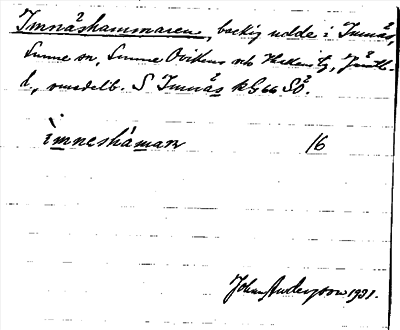 Imnåshammaren, backig udde i Imnäs,
Sunne sn, Sunne Ovikens och Hackås tg, Jämtl.
l., medelb. S Imnås kG66SÖ.
imneshaman 16
Johan Anderzon 1931.